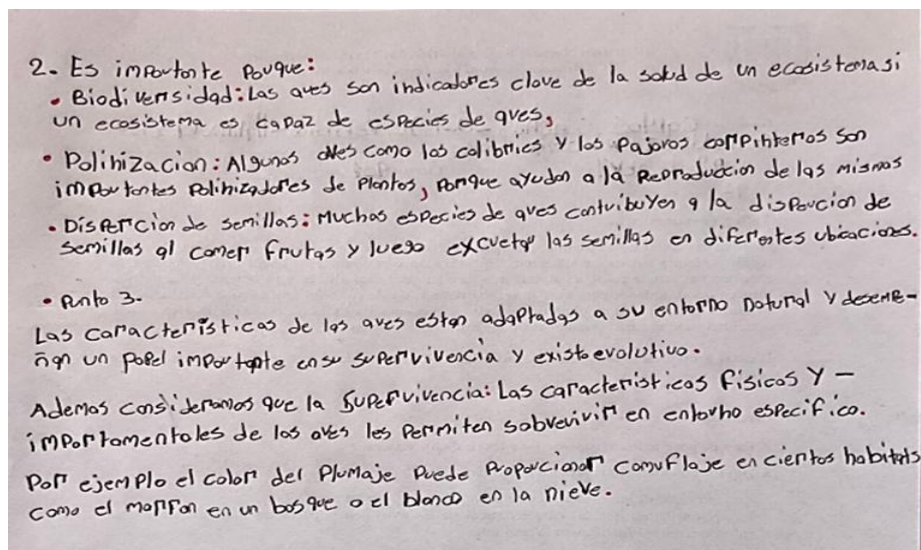 2. Es importante porque:
• Biodiversidad: Las aves son indicadores clave de la salud de un ecosistema si
un ecosistema es capaz de especies de aves,
• Polinizacion: Algunos aves como los colibries y los pajaros carpinteros son
importantes polinizadores de plantas, porque ayudan a la Reproduccion de las mismas
• Disperción de semillas: Muchas especies de aves contribuyen a la disperción de
semillas al comer frutas y luego excretar las semillas en diferentes ubicaciones.
• Punto 3.
Las características de las aves estan adaptadas a su entorno natural y deseme-
ñan un papel importante en su supervivencia y existo evolutivo.
Ademas consideramos que la Supervivencia: Las características físicas y -
importamentales de las aves les permiten sobrevivir en entorno especifico.
Por ejemplo el color del Plumaje Puede Proporcionar camuflaje en ciertos habitats
como el marron en un bosque o el blanco en la nieve.